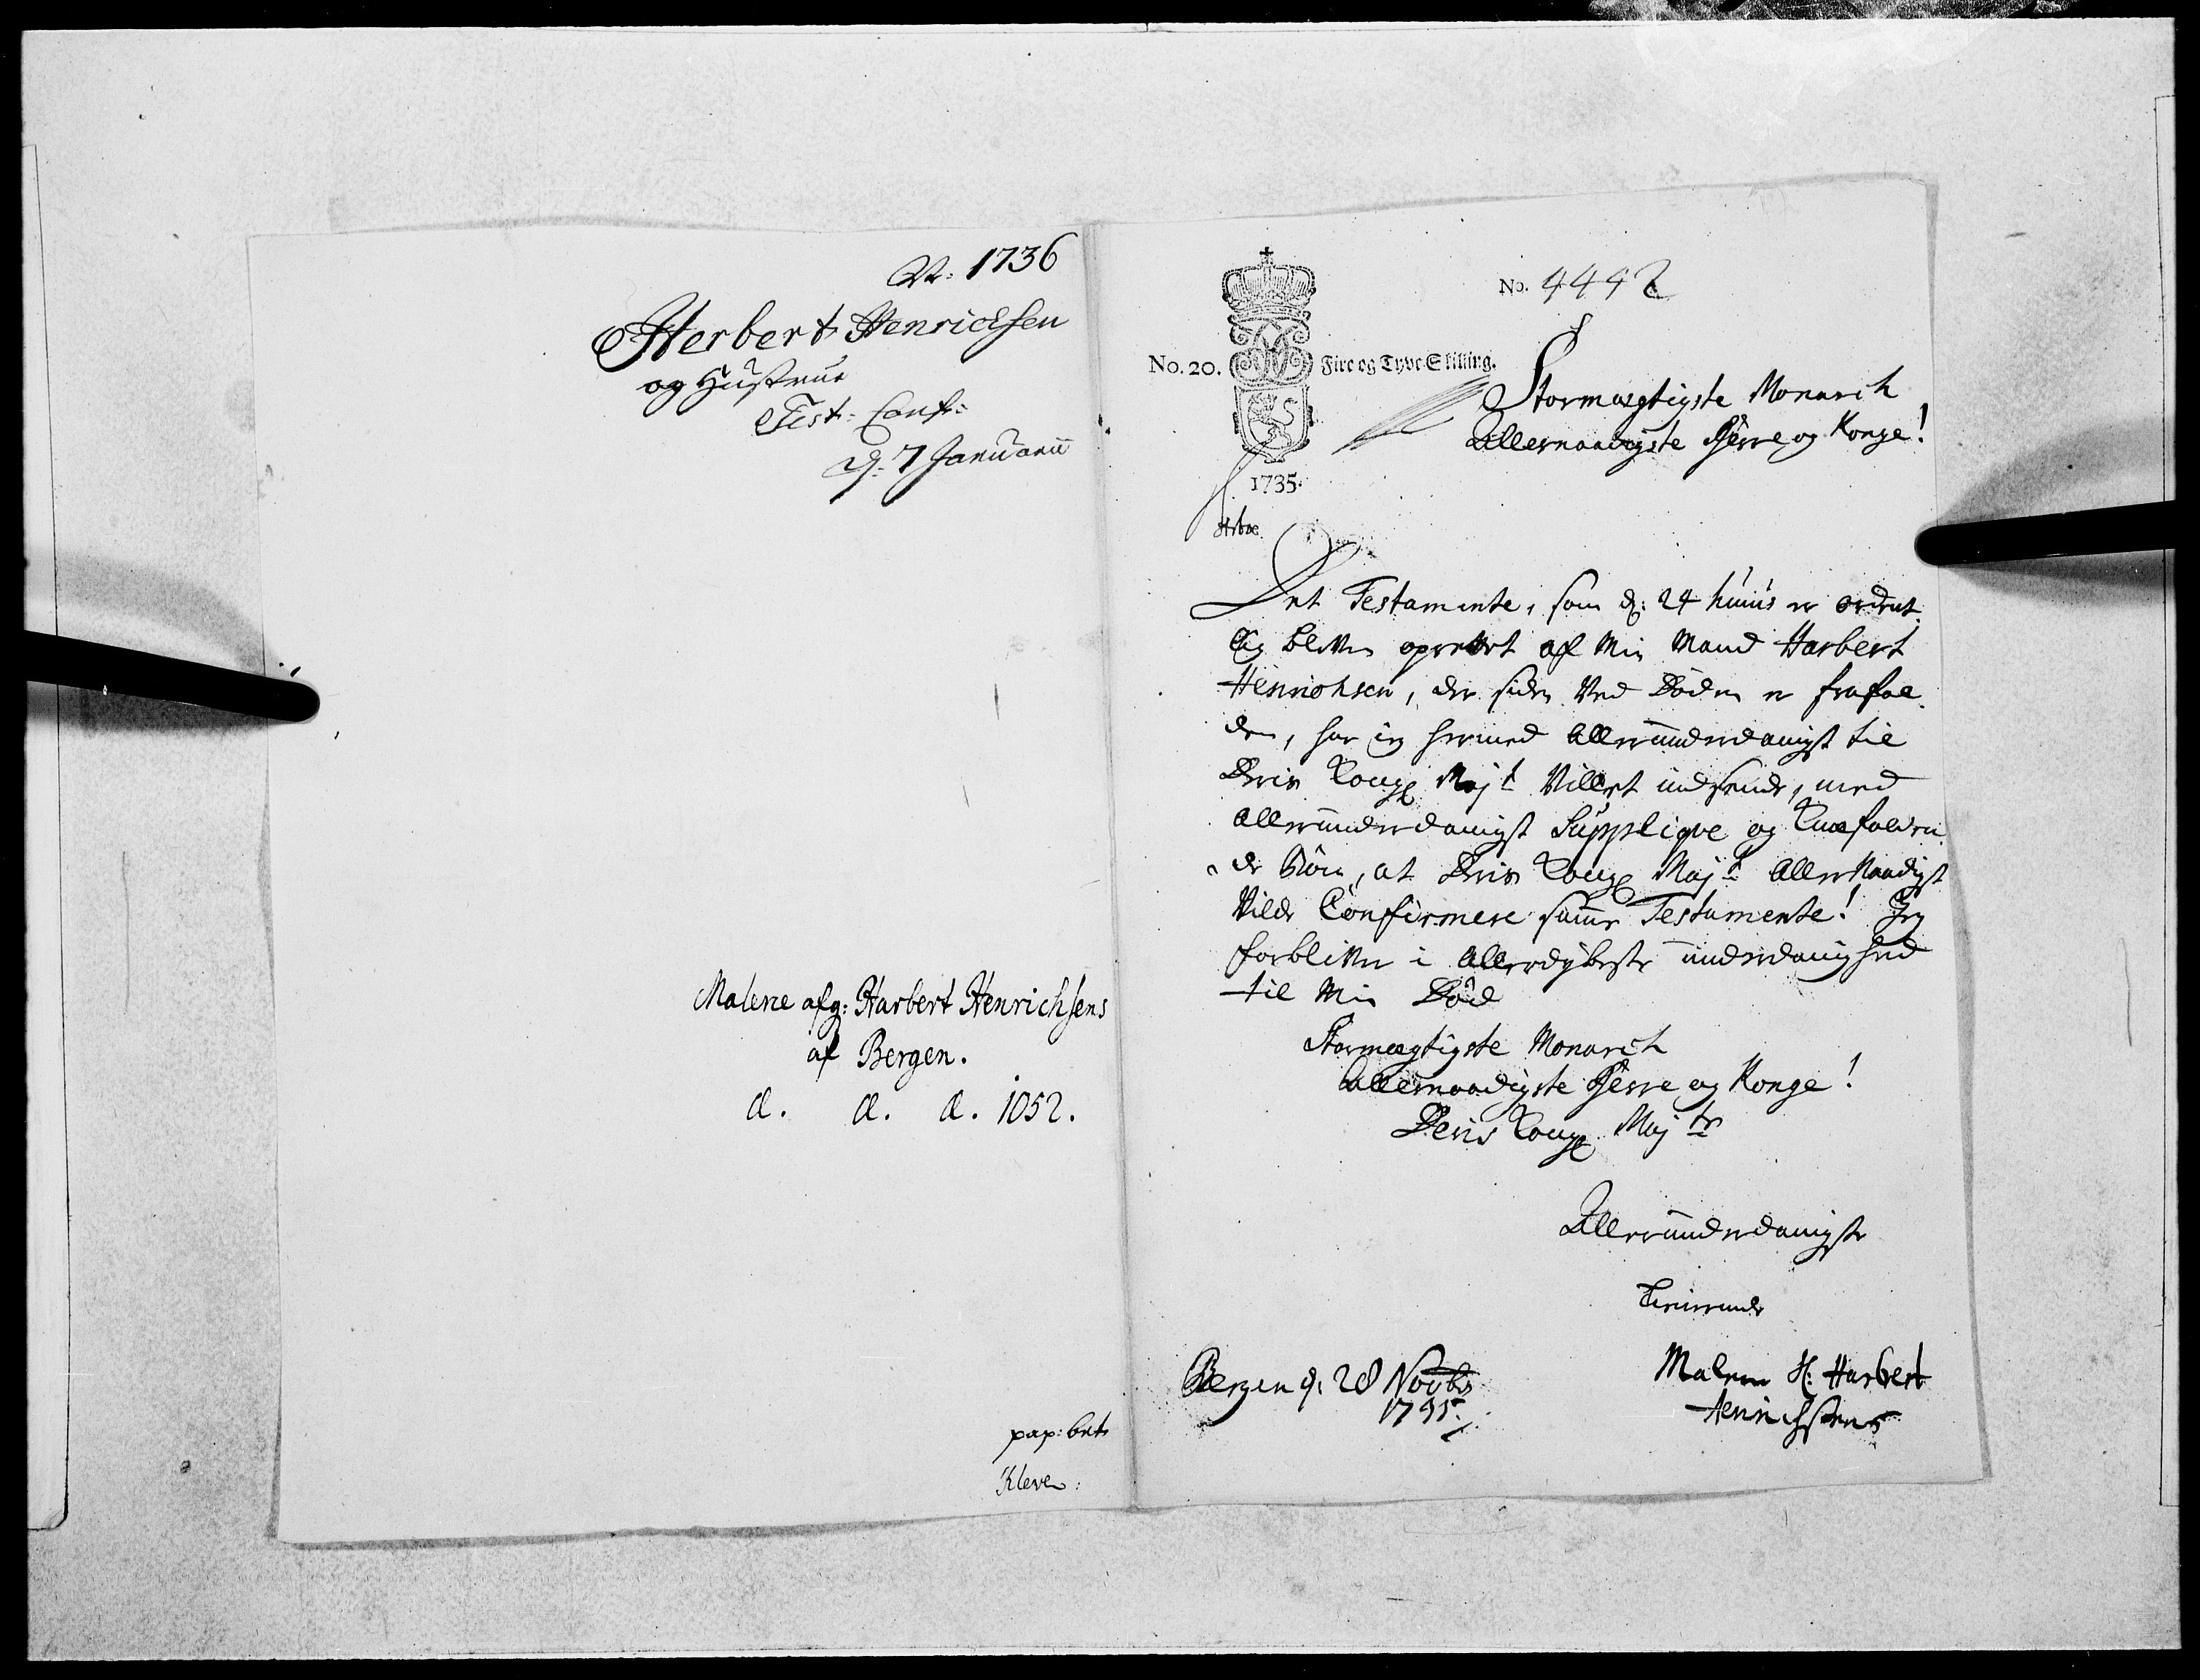 N: 1736
Herbert Henrichsen
og Hustrue
Test: Conf:
d: 7 Januarii
Malene afg: Harbert Henrichsens
af Bergen.
d. d. d. 1052.
pap: bet
Kleve:
No. 4442
No. 20. Fire og Tyve Skilling.
1735.
Stormægtigste Monarch
Allernaadigste Herre og Konge!
Det Testamente, som d: 24 huius er ordent
lig bleven oprettet af Min Mand Harbert
Henrichsen, der siden Ved Døden er frafal
den, har ieg hermed allerunderdanigst til
Deris Kongl Majt Villet indsende, med
allerunderdanigst Suppliqve og Knæfalden
de bøn, at Deris Kongl Majt Aller Naadigst
Vilde Confirmere samme Testamente! Jeg
forbliver i allerdybeste underdanighed
til Min Død
Stormægtigste Monarch
Allernaadigste Herre og Konge!
Deris Kongl Majts
Allerunderdanigste
Tienerinde
Bergen d: 28 Novbr
1735.
Malene Sl: Harbert
Henrichsens